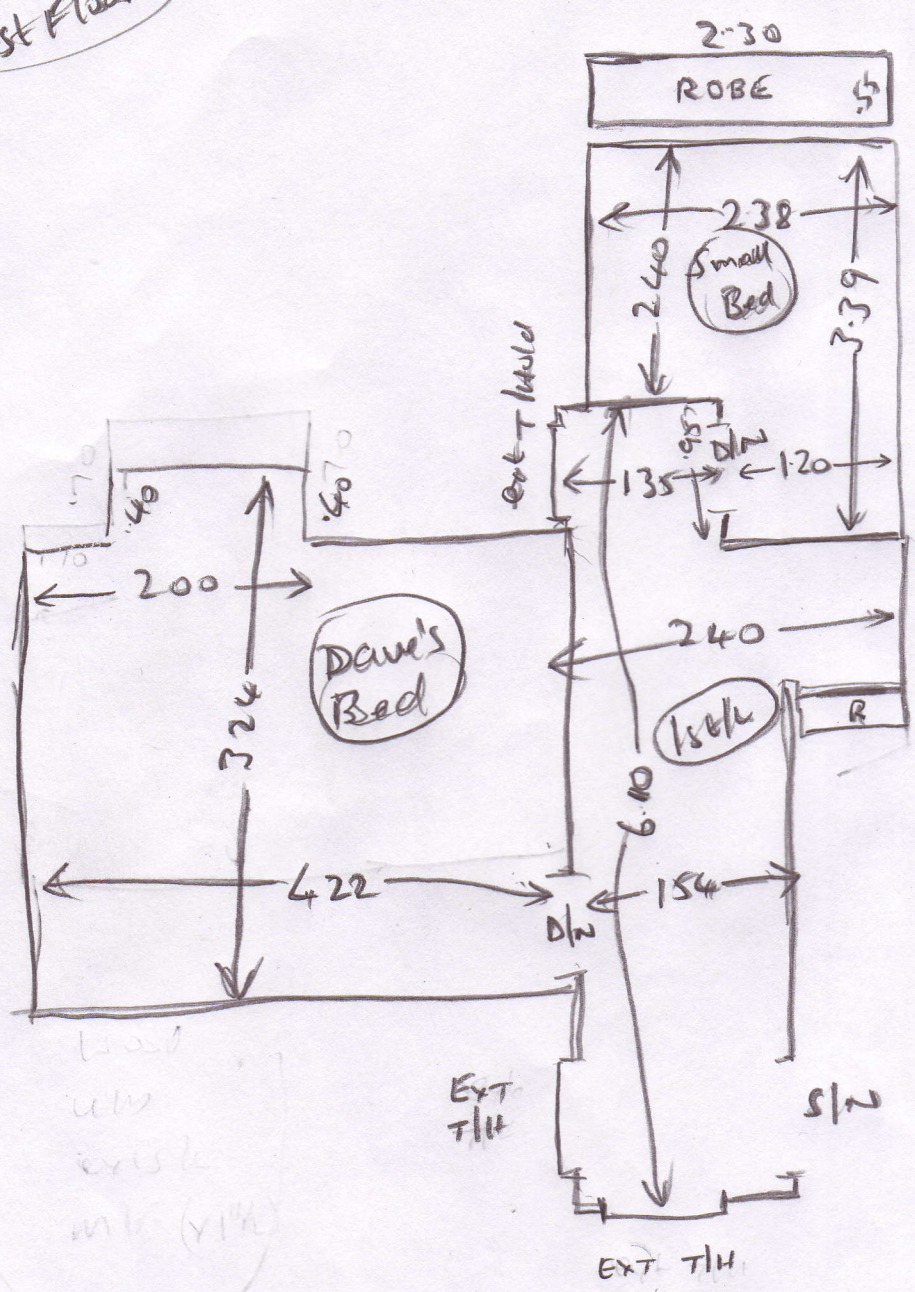 st Floor
2.30
ROBE
2.38
2.40
Small
Bed
3.39
ext T/Hold
.95
D/N
135
1.20
.70
.40
.70
.40
200
240
Dave's
Bed
324
R
6.10
422
154
D/N
EXT
T/H
S/N
EXT T/H